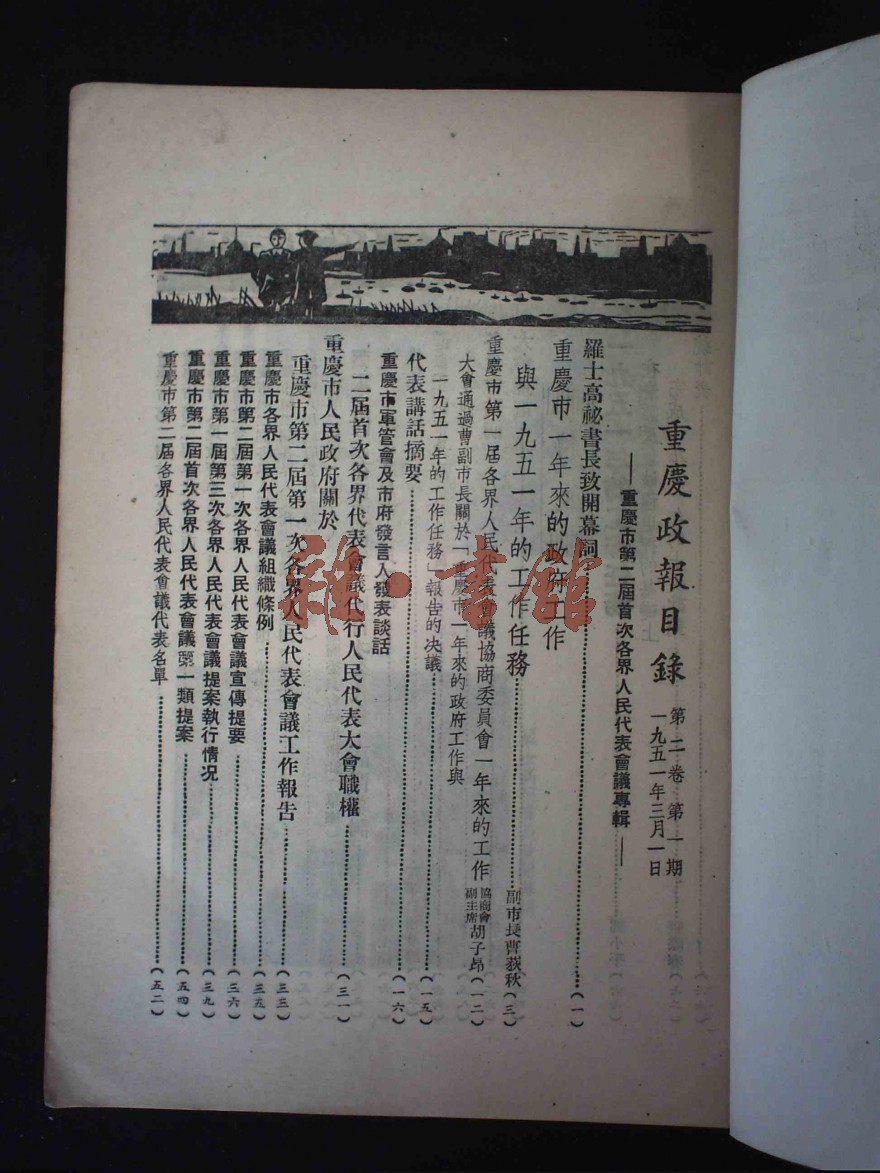 重慶政報目錄
第二卷 第一期
一九五一年三月一日
——重慶市第二屆首次各界人民代表會議專輯——
羅士高秘書長致開幕詞……(一)
重慶市一年來的政府工作
與一九五一年的工作任務……副市長曹荻秋(三)
重慶市第一屆各界人民代表會議協商委員會一年來的工作 協商會副主席胡子昂(一二)
大會通過曹副市長關於「重慶市一年來的政府工作與
一九五一年的工作任務」報告的決議……(一五)
代表講話摘要……(一六)
重慶市軍管會及市府發言人發表談話
二屆首次各界代表會議代行人民代表大會職權……(三一)
重慶市人民政府關於
重慶市第二屆第一次各界人民代表會議工作報告……(三三)
重慶市各界人民代表會議組織條例……(三五)
重慶市第二屆第一次各界人民代表會議宣傳提要……(三六)
重慶市第一屆第三次各界人民代表會議提案執行情况……(三九)
重慶市第二屆首次各界人民代表會議第一類提案……(五四)
重慶市第二屆各界人民代表會議代表名單……(五二)
雜·書館